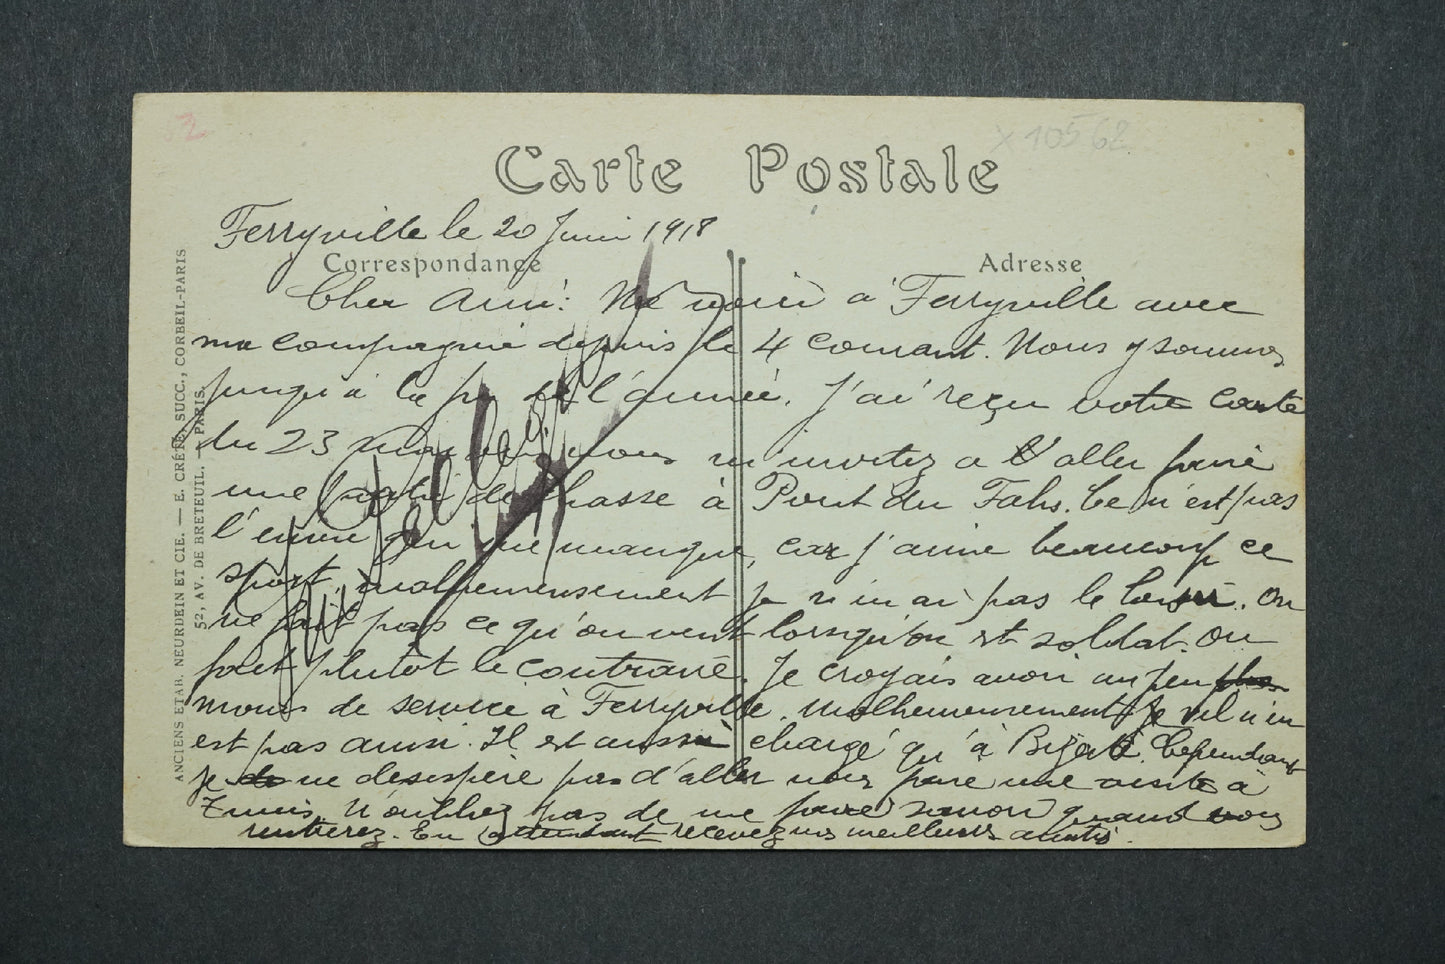 Carte Postale
X 10562
Ferryville le 20 Juin 1918
Correspondance
Adresse
Cher Ami: Me voici à Ferryville avec
ma compagnie depuis le 4 courant. Nous y sommes
jusqu'à la fin de l'année. J'ai reçu votre carte
du 23 mai vous m'invitez a aller faire
une partie de chasse à Pont du Fahs. Ce n'est pas
l'envie qui me manque, car j'aime beaucoup ce
sport malheureusement je n'en ai pas le loisir. On
ne fait pas ce qu'on veut lorsqu'on est soldat. On
fait plutôt le contraire. Je croyais avoir un peu
moins de service à Ferryville. Malheureusement il n'en
est pas ainsi. Il est aussi chargé qu'à Bizerte. Cependant
je ne desespère pas d'aller vous faire une visite à
Tunis. N'oubliez pas de me faire savoir quand vous
rentrerez. En attendant recevez mes meilleures amitiés.
ANCIENS ETAB. NEURDEIN ET CIE. — E. CRÉTÉ, SUCC., CORBEIL-PARIS
52, AV. DE BRETEUIL. — PARIS.